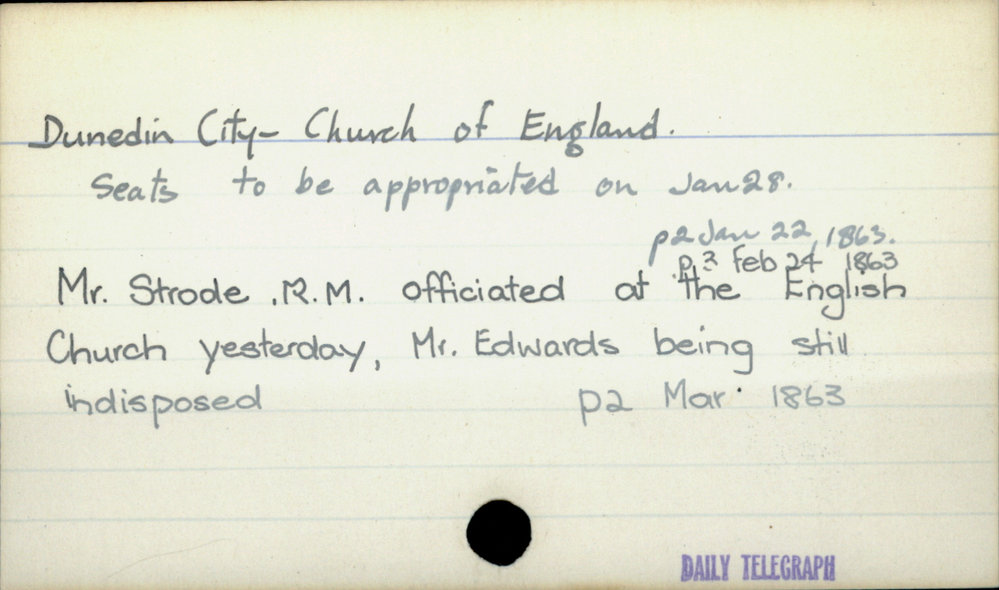 Dunedin City- Church of England.
Seats to be appropriated on Jan 28.
p2 Jan 22, 1863.
p 3 Feb 24 1863
Mr. Strode .R.M. officiated at the English
Church yesterday, Mr. Edwards being still
indisposed p2 Mar 1863
DAILY TELEGRAPH